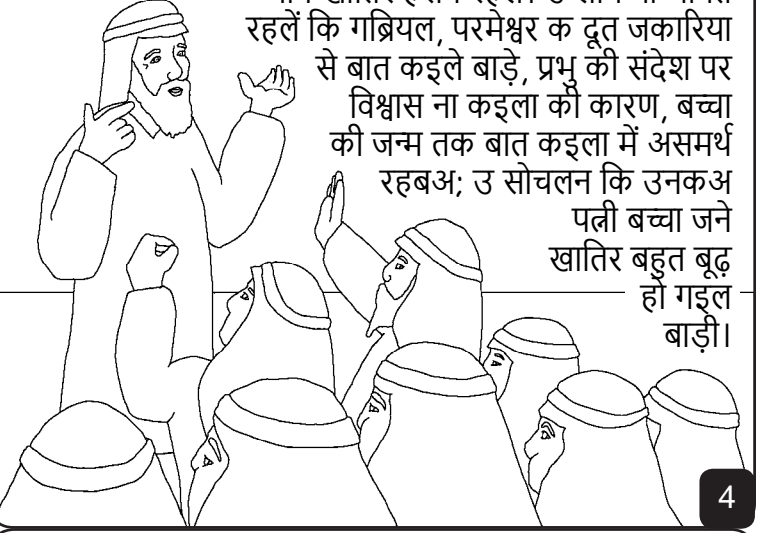 रहलें कि गब्रियल, परमेश्वर क दूत जकारिया
से बात कइले बाड़े, प्रभु की संदेश पर
विश्वास ना कइला की कारण, बच्चा
की जन्म तक बात कइला में असमर्थ
रहबअ; उ सोचलन कि उनकअ
पत्नी बच्चा जने
खातिर बहुत बूढ़
हो गइल
बाड़ी।
4